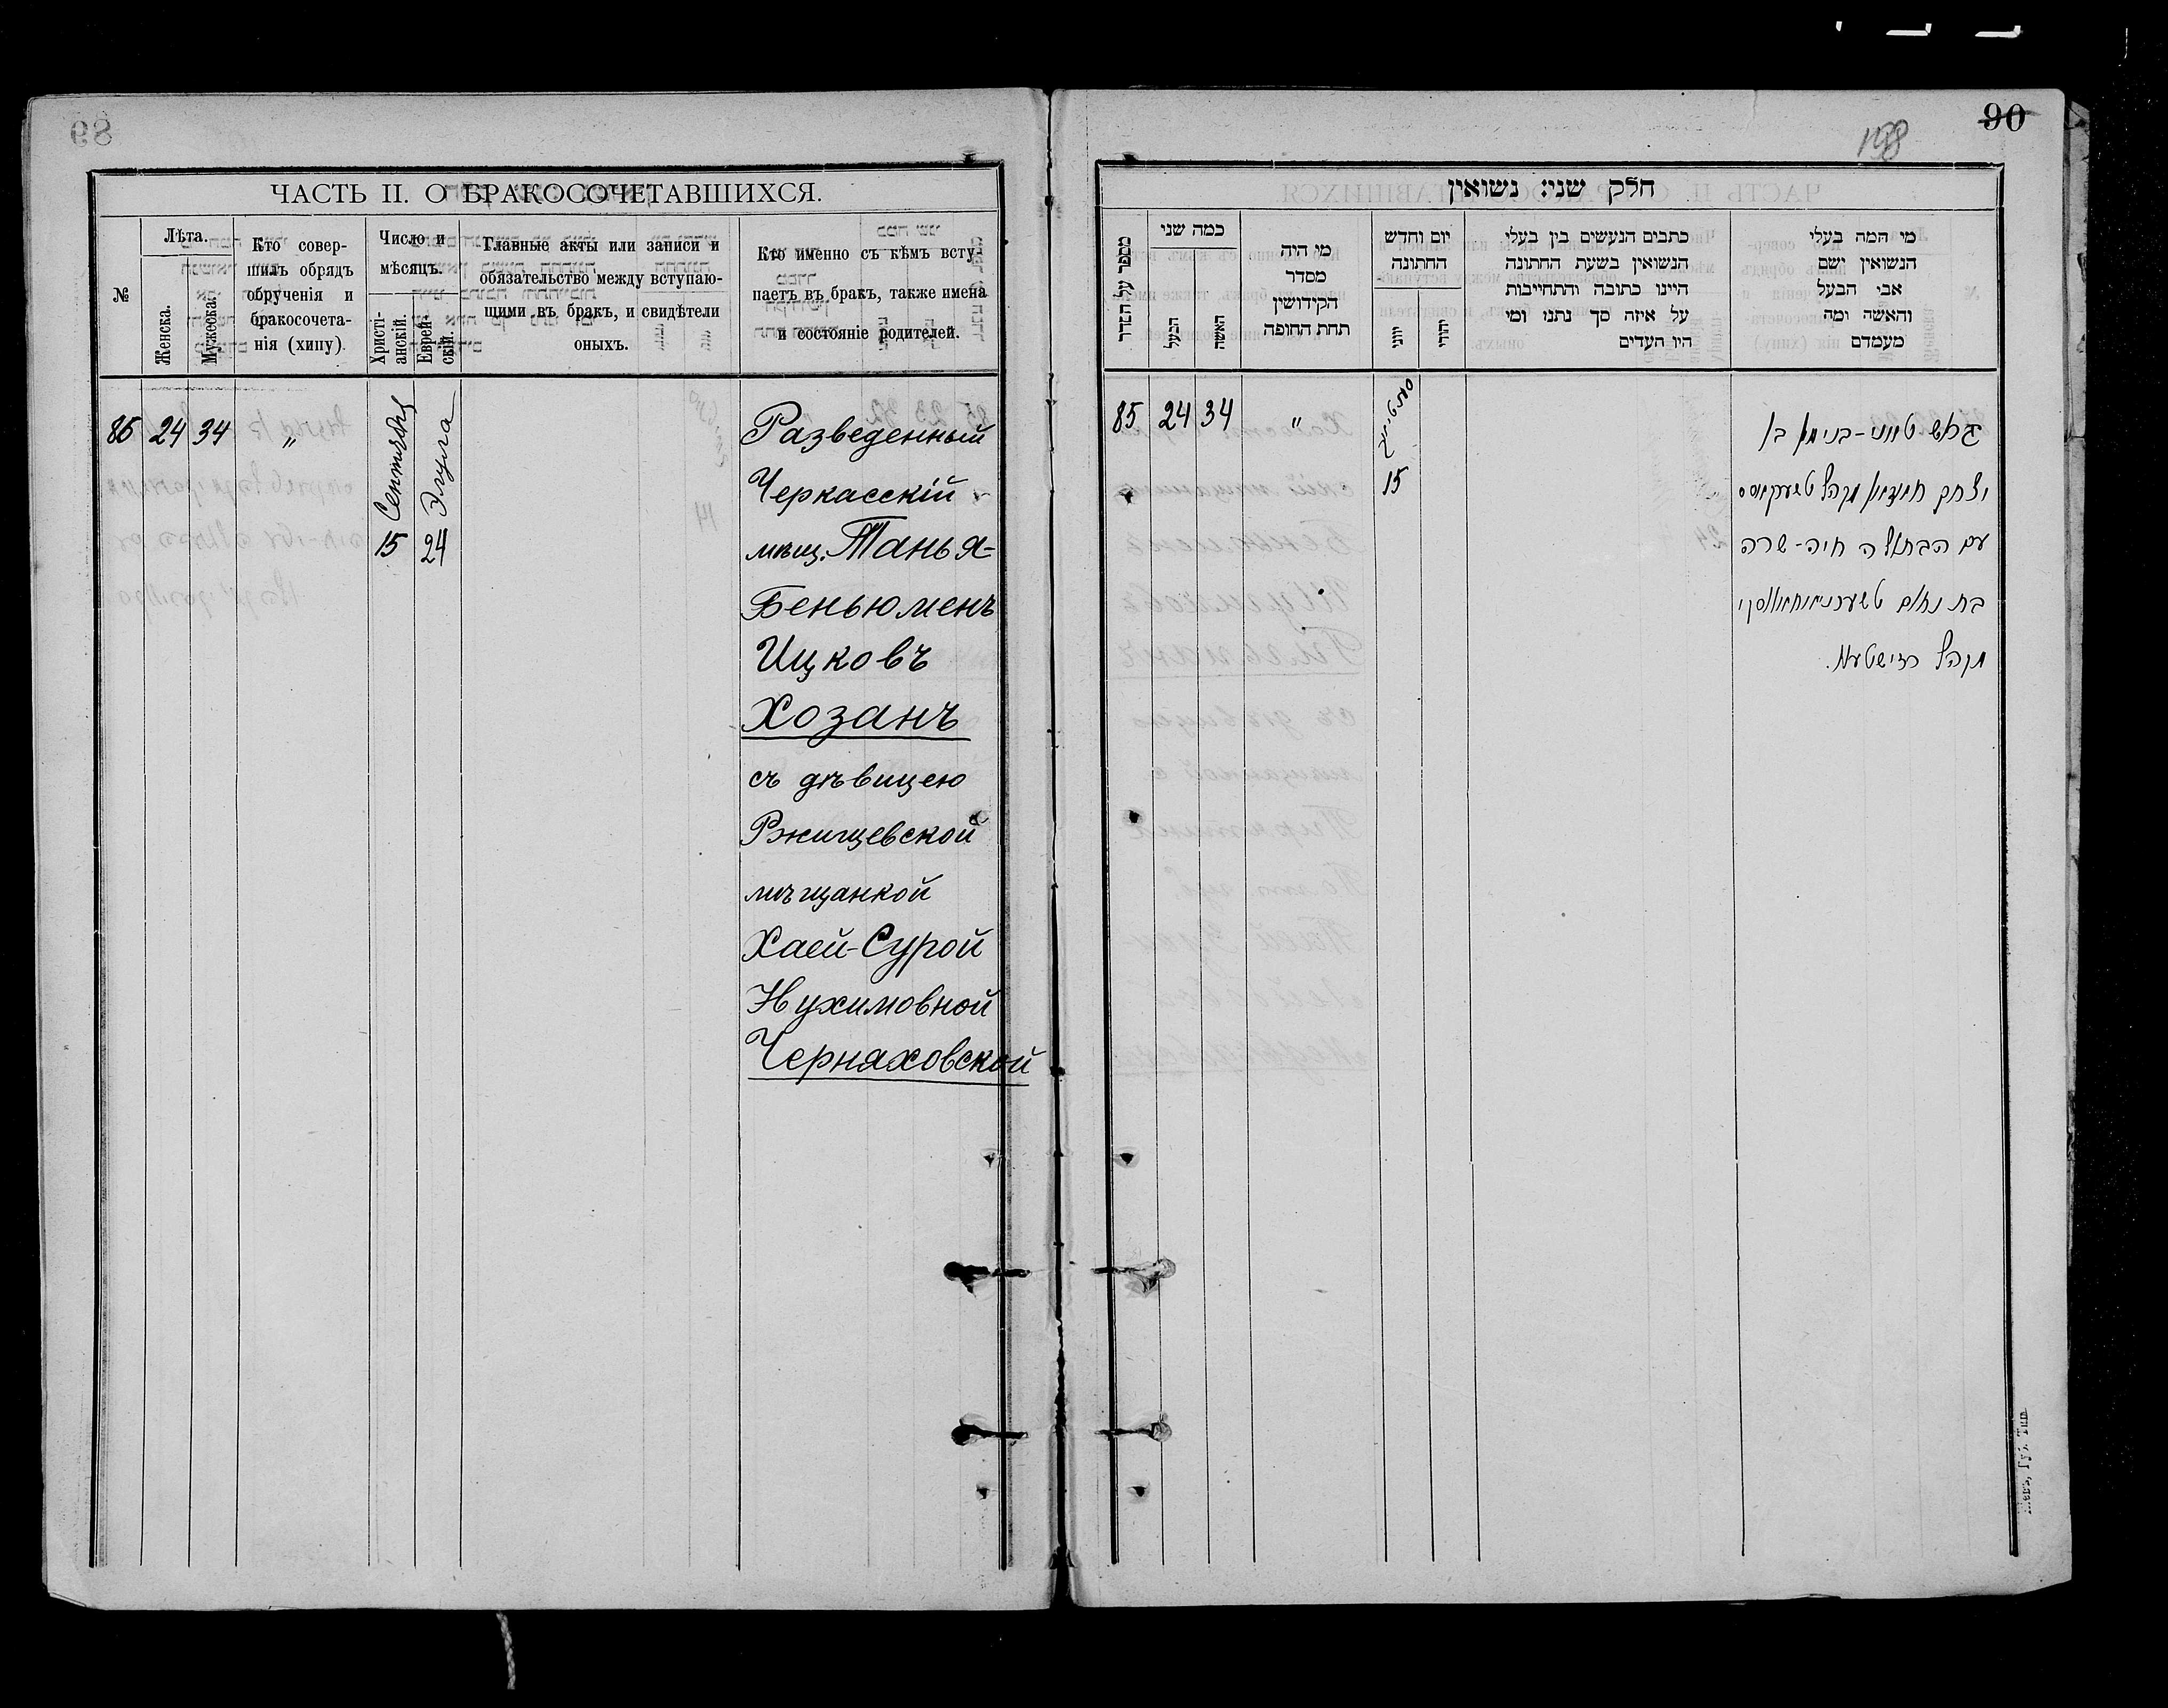 90
198
ЧАСТЬ II. О БРАКОСОЧЕТАВШИХСЯ.
№
Лѣта.
Женска.
Мужеска.
Кто совер-
шилъ обрядъ
обрученія и
бракосочета-
нія (хипу).
Число и
мѣсяцъ.
Христі-
анскій.
Еврей-
скій.
Главные акты или записи и
обязательство между вступаю-
щими въ бракъ, и свидѣтели
оныхъ.
Кто именно съ кѣмъ всту-
паетъ въ бракъ, также имена
и состояніе родителей.
85 24 34 „
Сентября
15
Элула
24
Разведенный
Черкасскій
мѣщ. Танья-
Беньюменъ
Ицковъ
Хозанъ
съ дѣвицею
Ржищевской
мѣщанкой
Хаей-Сурой
Нухимовной
Черняховской
חלק שני: נשואין
מספר על הסדר
כמה שני
הבעל
האשה
מי היה
מסדר
הקידושין
תחת החופה
יום וחדש
החתונה
יוני
יהודי
כתבים הנעשים בין בעלי
הנשואין בשעת החתונה
היינו כתובה והתחייבות
על איזה סך נתנו ומי
היו העדים
מי המה בעלי
הנשואין ושם
אבי הבעל
והאשה ומה
מעמדם
85 24 34 „
15
בן
יצחק מקהל
עם הבתולה חיה-שרה
בת נחום
מקהל